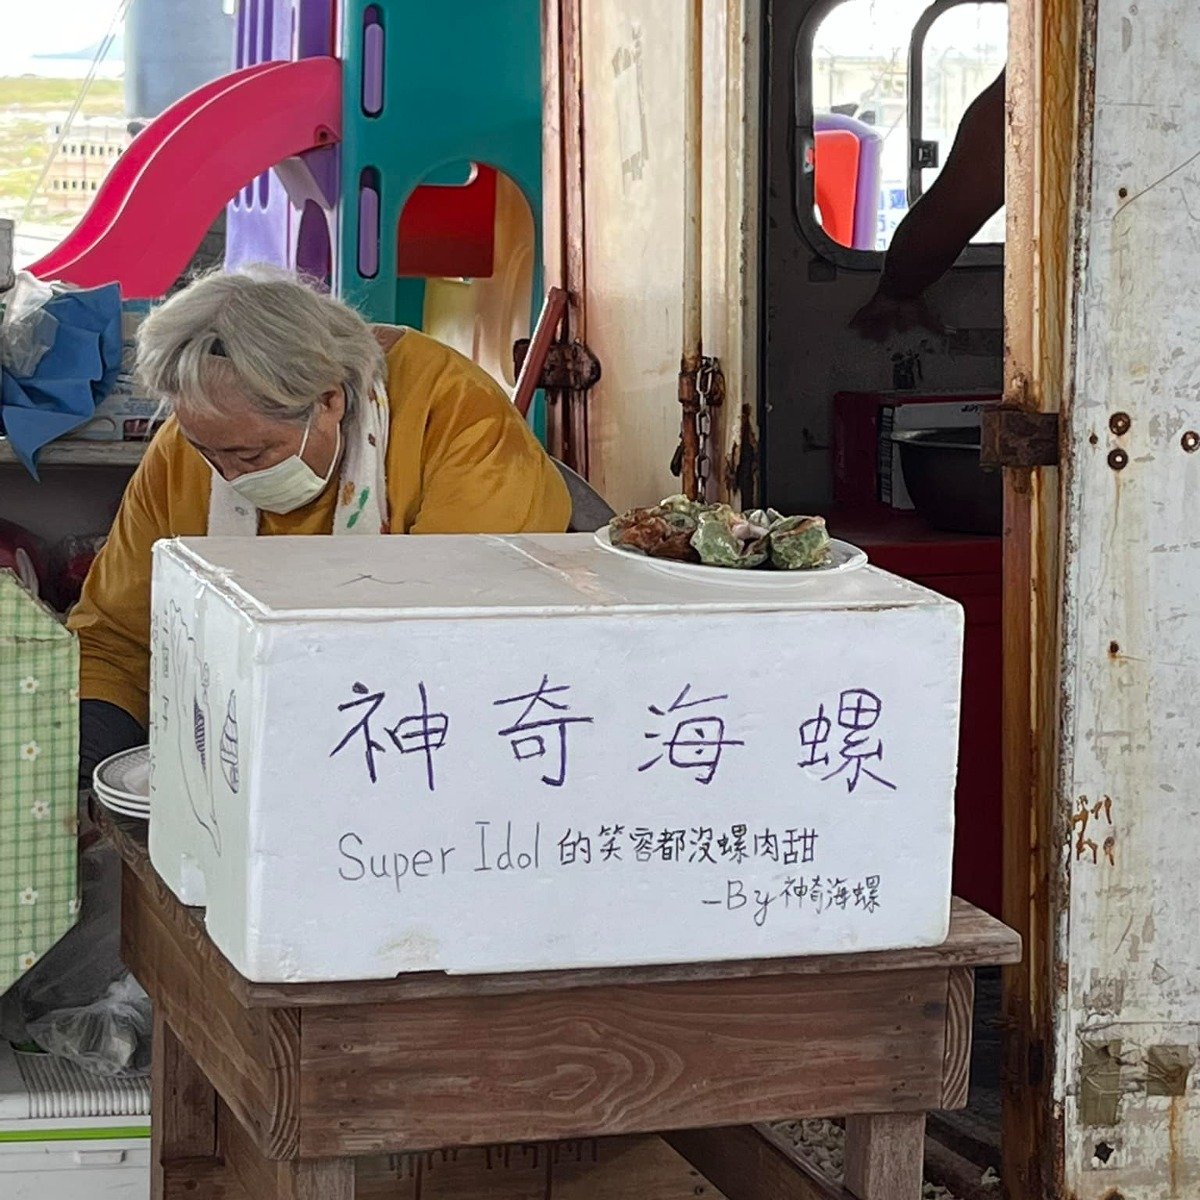 神奇海螺
Super Idol的笑容都沒螺肉甜
-By神奇海螺